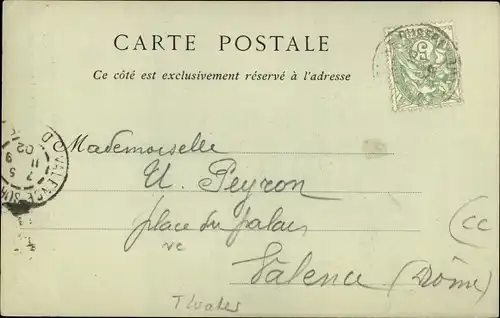 CARTE POSTALE
Ce côté est exclusivement réservé à l'adresse
5
VALENCE SUR
7
5
11
02
Mademoiselle
U. Peyron
place du palais
Valence (Drôme)
CC